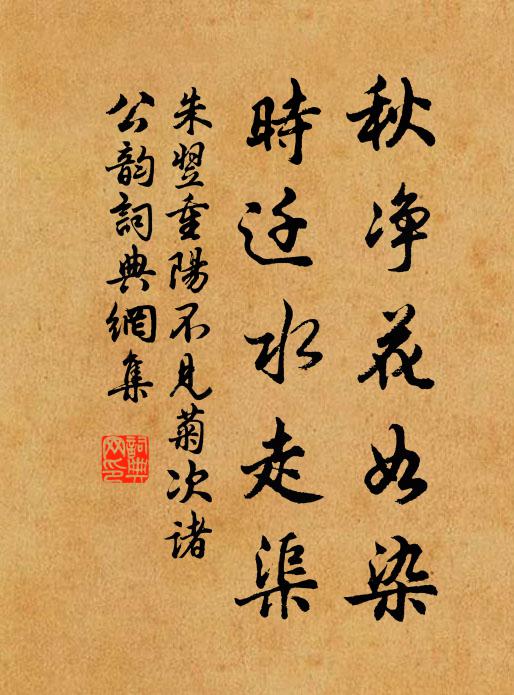 秋净花如染
時迁水走渠
朱翌重陽不見菊次諸
公韵詞典網集
詞典
网印